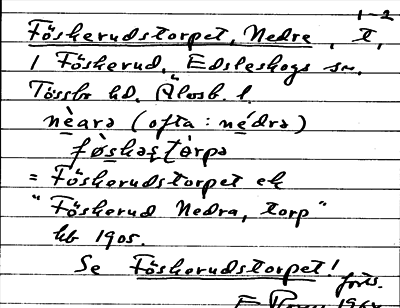 1-2
Föskerudstorpet, Nedre, T,
i Föskerud, Edsleskogs sn.
Tössbo hd. Älvsb. l.
nèarə (ofta: nédrə)
fø̀skəstòrpə
= Föskerudstorpet ek
"Föskerud Nedra, torp"
hb 1905.
Se Föskerudstorpet!
forts.